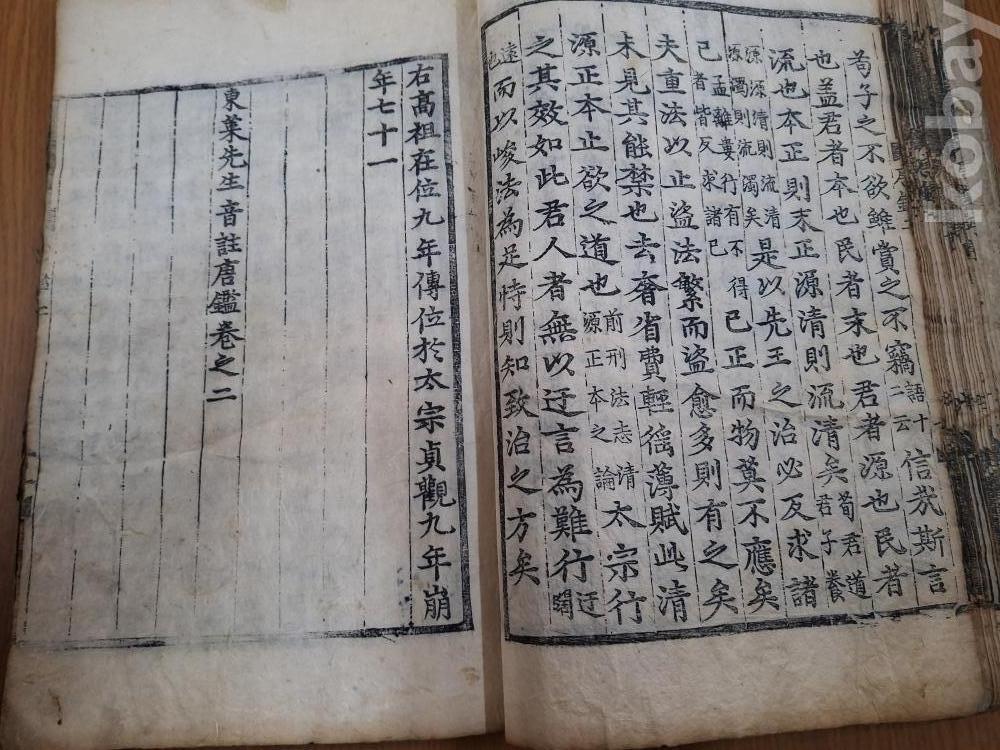 苟子之不欲雖賞之不竊語十二云信哉斯言
也蓋君者本也民者末也君者源也民者
流也本正則末正源清則流清矣荀君道君子養
源源清則流清源濁則流濁矣是以先王之治必反求諸
己孟離婁行有不得者皆反求諸己己正而物莫不應矣
夫重法以止盜法繁而盜愈多則有之矣
未見其能禁也去奢省費輕徭薄賦此清
源正本止欲之道也前刑法志清源正本之論太宗行
之其效如此君人者無以迂言為難行迂闊
遠也而以峻法為足恃則知致治之方矣
右高祖在位九年傳位於太宗貞觀九年崩
年七十一
東萊先生音註唐鑑卷之二
kobay